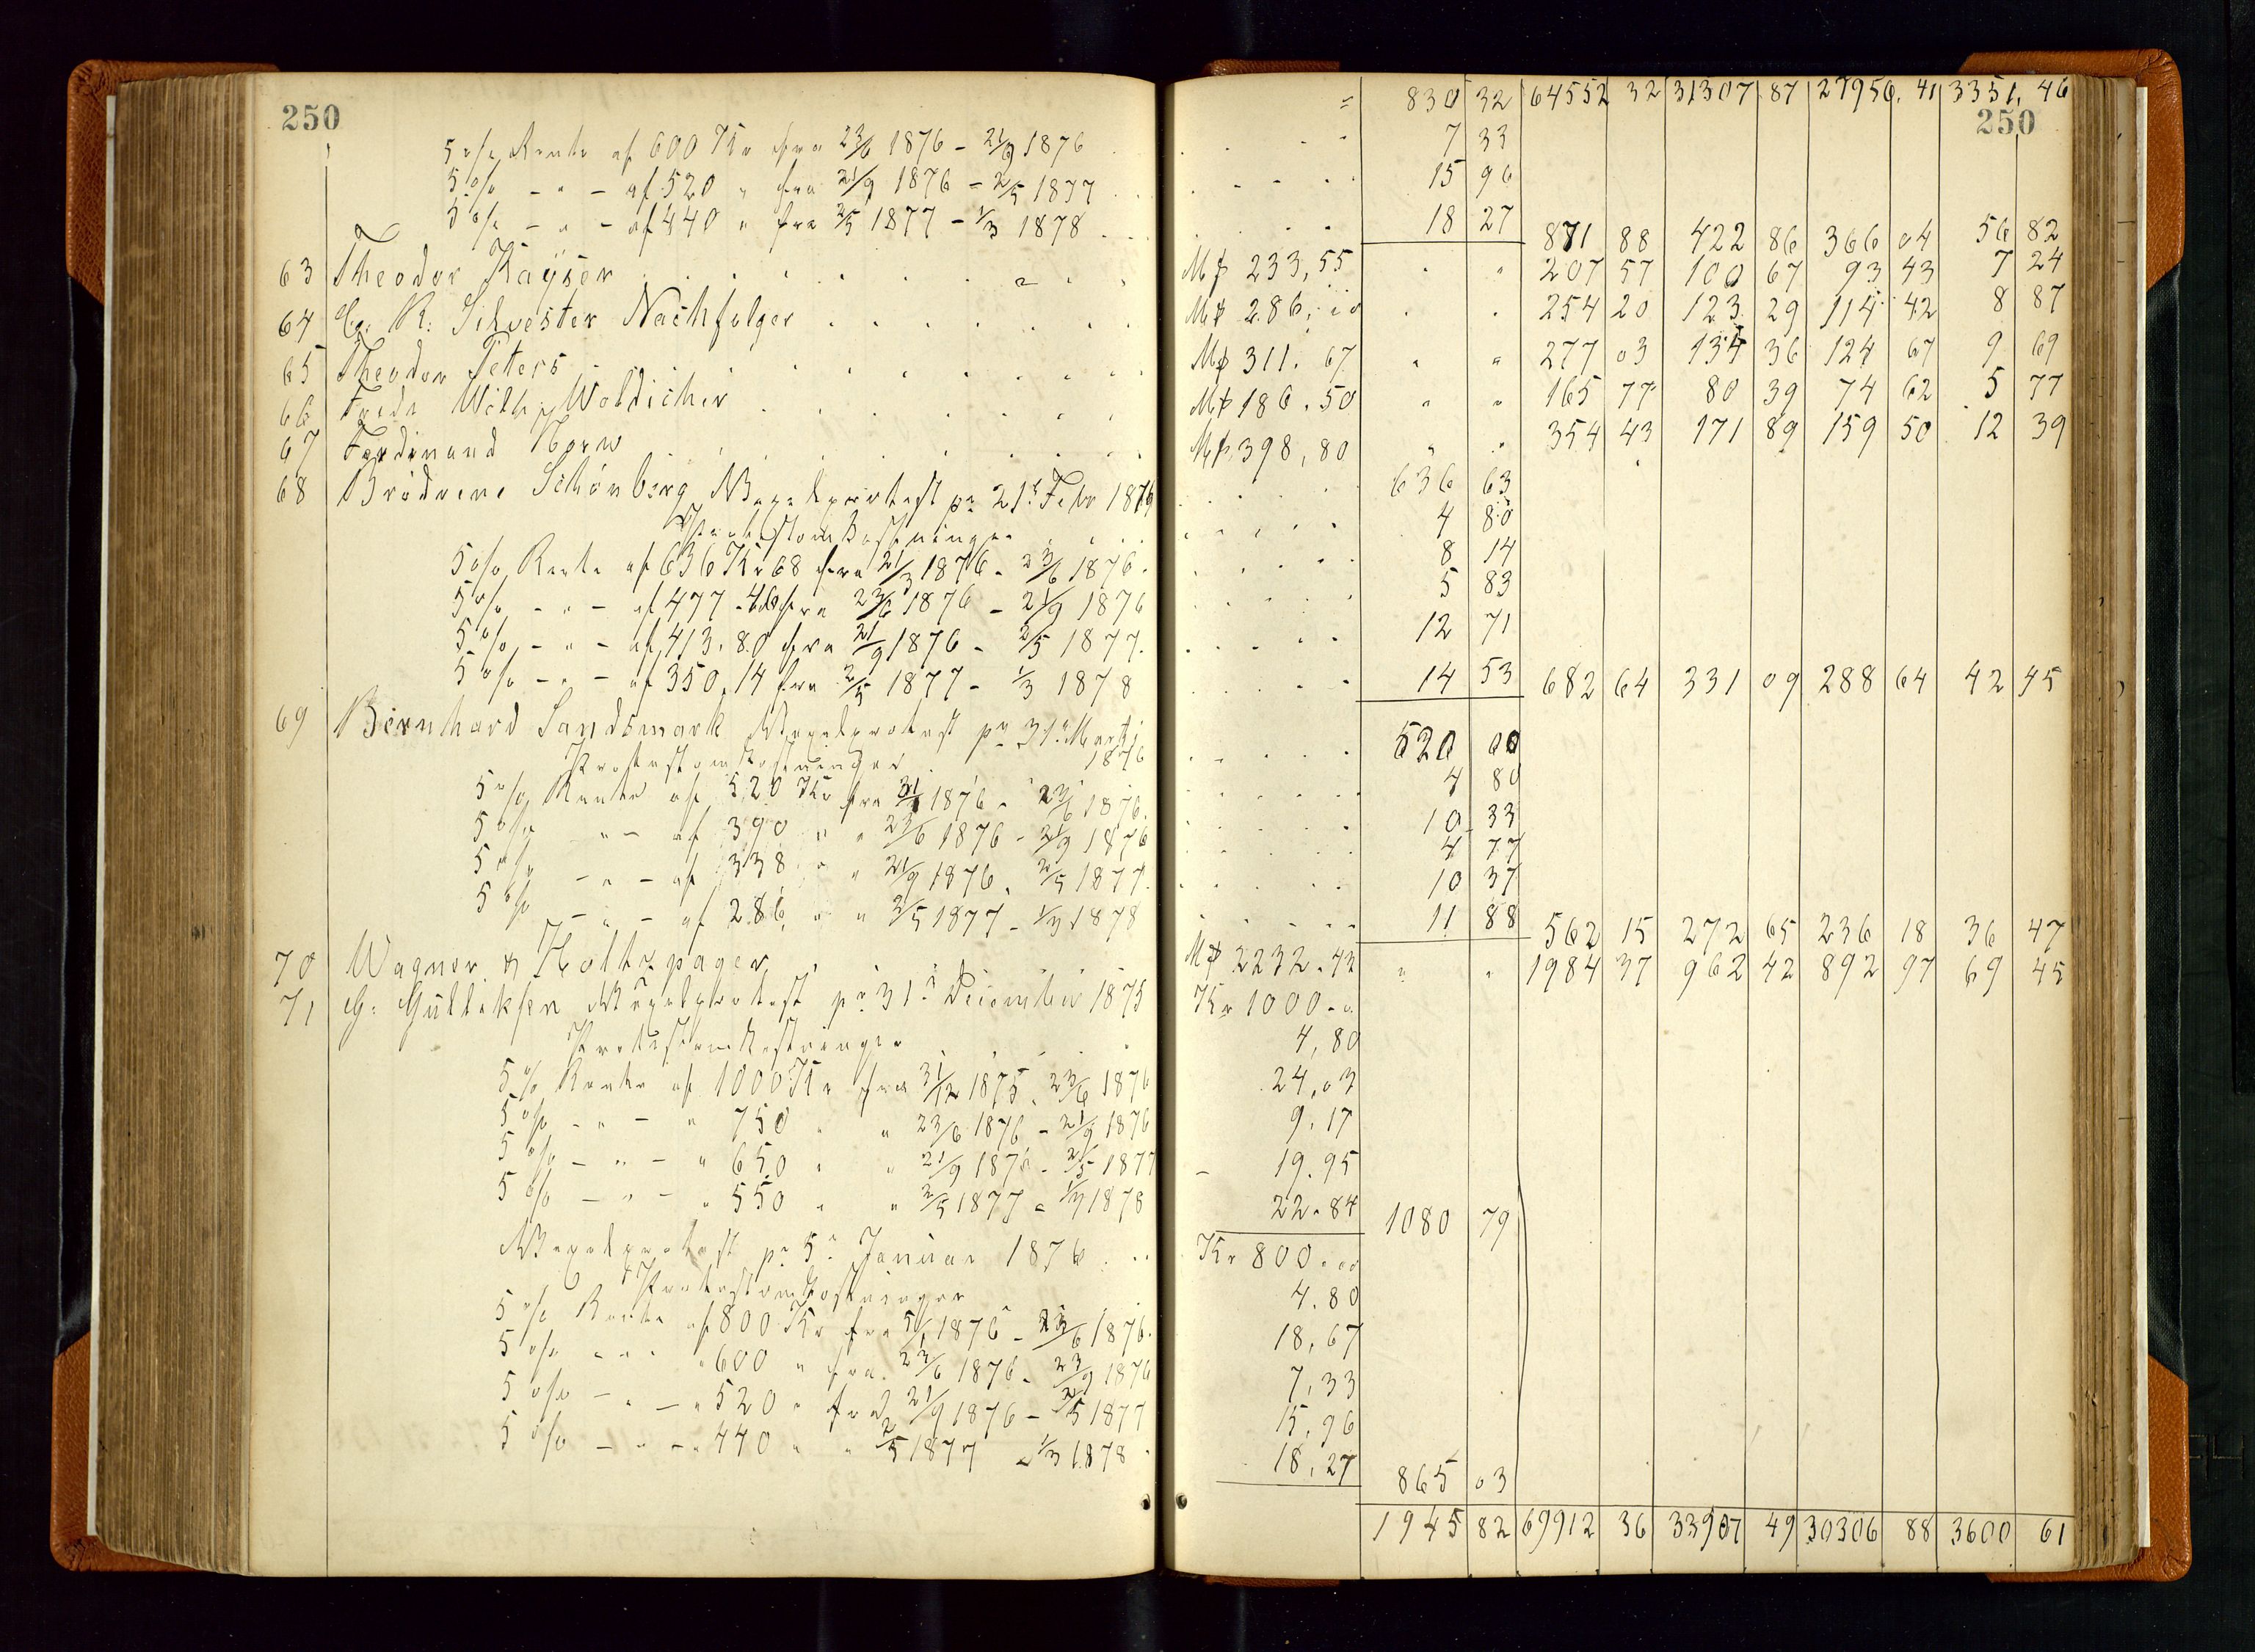 250
= 830 32 64552 32 31307 87 27956. 41 3351. 46
250
5% Rente af 600 Kr fra 23/6 1876 - 21/9 1876 7 33
5% - " - af 520 " fra 21/9 1876 - 2/5 1877 15 96
5% - " - af 440 " fra 2/5 1877 - 1/3 1878 18 27 871 88 422 86 366 04 56 82
63 Theodor Kayser M₰ 233,55 " " 207 57 100 67 93 43 7 24
64 R: Silvester Nachfolger M₰ 286, 00 " " 254 20 123 29 114 42 8 87
65 Theodor Peters M₰ 311. 67 " " 277 03 134 36 124 67 9 69
66 Wilh. M₰ 186. 50 " " 165 77 80 39 74 62 5 77
67 Ferdinand M₰ 398,80 " " 354 43 171 89 159 50 12 39
68 Brødrene Schönberg Vexelprotest pr 21d Febr 1876 636 63
Protestomkostninger 4 80
5% Rente af 636 Kr 68 fra 21/3 1876 - 23/6 1876 8 14
5% - " - af 477 - 46 fra 23/6 1876 - 21/9 1876 5 83
5% - " - af 413. 80 fra 21/9 1876 - 2/5 1877. 12 71
5% - " - af 350. 14 fra 2/5 1877 - 1/3 1878 14 53 682 64 331 09 288 64 42 45
69 Bernhard Sandsmark Vexelprotest pr 31d Marts 520 00
Protestomkostninger 1876 4 80
5% Rente af 520 Kr fra 1876 - 23/6 1876. 10 33
5% " - af 390 " " 23/6 1876 - 21/9 1876 4 77
5% - " - af 338 " " 21/9 1876 - 2/5 1877. 10 37
5% - " - af 286 " " 2/5 1877 - 1/3 1878 11 88 562 15 272 65 236 18 36 47
70 Wagner & Holtzpager M₰ 2232. 42 " " 1984 37 962 42 892 97 69 45
71 G: Gulliksen Vexelprotest pr 31d December 1875 Kr 1000 - "
Protestomkostninger 4,80
5% Rente af 1000 Kr fra 31/12 1875 - 23/6 1876 24,03
5% - " - " 750 " " 23/6 1876 - 21/9 1876 9.17
5% - " - " 650 " " 21/9 1876 - 2/5 1877 19.95
5% - " - " 550 " " 2/5 1877 - 1/3 1878 22.84 1080 79
Vexelprotest pr 5d Januar 1876 Kr 800. 00
Protestomkostninger 4.80
5% Rente af 800 Kr fra 5/1 1876 - 23/6 1876. 18,67
5% - " - " 600 " fra 23/6 1876 - 23/9 1876 7,33
5% - " - " 520 " fra 21/9 1876 - 2/5 1877 15,96
5% - " - " 440 " " 2/5 1877 - 1/3 1878 18,27 865 03
1945 82 69912 36 33907 49 30306 88 3600 61